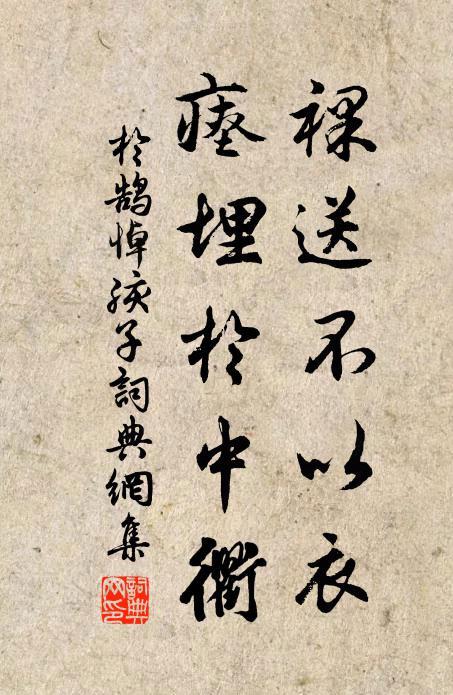 裸送不以衣
瘞埋於中衢
於鵠悼孩子詞典網集
詞典
网印